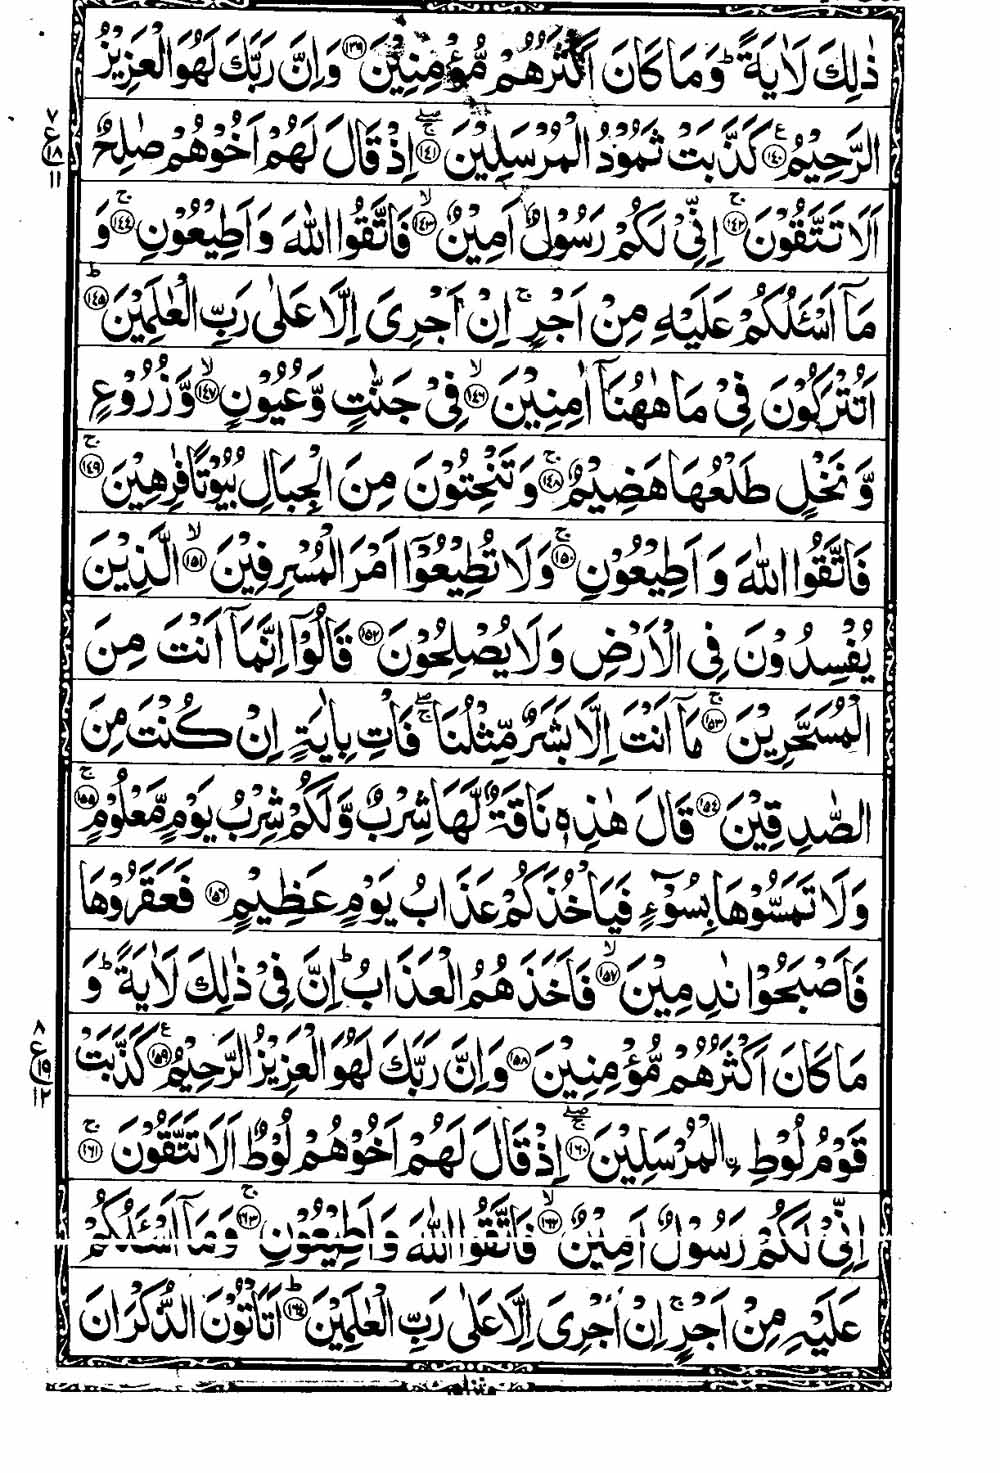 ذٰلِكَ لَاٰيَةً ؕ وَمَا كَانَ اَكْثَرُهُمْ مُّؤْمِنِيْنَ ﴿۱۳۹﴾ وَاِنَّ رَبَّكَ لَهُوَ الْعَزِيْزُ
الرَّحِيْمُ ﴿۱۴۰﴾ كَذَّبَتْ ثَمُوْدُ الْمُرْسَلِيْنَ ﴿۱۴۱﴾ اِذْ قَالَ لَهُمْ اَخُوْهُمْ صٰلِحٌ
اَلَا تَتَّقُوْنَ ﴿۱۴۲﴾ اِنِّىْ لَكُمْ رَسُوْلٌ اَمِيْنٌ ﴿۱۴۳﴾ فَاتَّقُوا اللّٰهَ وَاَطِيْعُوْنِ ﴿۱۴۴﴾ وَ
مَاۤ اَسْـَٔلُكُمْ عَلَيْهِ مِنْ اَجْرٍ ۚ اِنْ اَجْرِىَ اِلَّا عَلٰى رَبِّ الْعٰلَمِيْنَ ﴿۱۴۵﴾
اَتُتْرَكُوْنَ فِىْ مَا هٰهُنَاۤ اٰمِنِيْنَ ﴿۱۴۶﴾ فِىْ جَنّٰتٍ وَّعُيُوْنٍ ﴿۱۴۷﴾ وَّزُرُوْعٍ
وَّنَخْلٍ طَلْعُهَا هَضِيْمٌ ﴿۱۴۸﴾ وَتَنْحِتُوْنَ مِنَ الْجِبَالِ بُيُوْتًا فٰرِهِيْنَ ﴿۱۴۹﴾
فَاتَّقُوا اللّٰهَ وَاَطِيْعُوْنِ ﴿۱۵۰﴾ وَلَا تُطِيْعُوْۤا اَمْرَ الْمُسْرِفِيْنَ ﴿۱۵۱﴾ الَّذِيْنَ
يُفْسِدُوْنَ فِى الْاَرْضِ وَلَا يُصْلِحُوْنَ ﴿۱۵۲﴾ قَالُوْۤا اِنَّمَاۤ اَنْتَ مِنَ
الْمُسَحَّرِيْنَ ﴿۱۵۳﴾ مَاۤ اَنْتَ اِلَّا بَشَرٌ مِّثْلُنَا ۖۚ فَاْتِ بِاٰيَةٍ اِنْ كُنْتَ مِنَ
الصّٰدِقِيْنَ ﴿۱۵۴﴾ قَالَ هٰذِهٖ نَاقَةٌ لَّهَا شِرْبٌ وَّلَكُمْ شِرْبُ يَوْمٍ مَّعْلُوْمٍ ﴿۱۵۵﴾
وَلَا تَمَسُّوْهَا بِسُوْٓءٍ فَيَاْخُذَكُمْ عَذَابُ يَوْمٍ عَظِيْمٍ ﴿۱۵۶﴾ فَعَقَرُوْهَا
فَاَصْبَحُوْا نٰدِمِيْنَ ﴿۱۵۷﴾ فَاَخَذَهُمُ الْعَذَابُ ؕ اِنَّ فِىْ ذٰلِكَ لَاٰيَةً ؕ وَ
مَا كَانَ اَكْثَرُهُمْ مُّؤْمِنِيْنَ ﴿۱۵۸﴾ وَاِنَّ رَبَّكَ لَهُوَ الْعَزِيْزُ الرَّحِيْمُ ﴿۱۵۹﴾ كَذَّبَتْ
قَوْمُ لُوْطِ ۨالْمُرْسَلِيْنَ ﴿۱۶۰﴾ اِذْ قَالَ لَهُمْ اَخُوْهُمْ لُوْطٌ اَلَا تَتَّقُوْنَ ﴿۱۶۱﴾
اِنِّىْ لَكُمْ رَسُوْلٌ اَمِيْنٌ ﴿۱۶۲﴾ فَاتَّقُوا اللّٰهَ وَاَطِيْعُوْنِ ﴿۱۶۳﴾ وَمَاۤ اَسْـَٔلُكُمْ
عَلَيْهِ مِنْ اَجْرٍ ۚ اِنْ اَجْرِىَ اِلَّا عَلٰى رَبِّ الْعٰلَمِيْنَ ﴿۱۶۴﴾ اَتَاْتُوْنَ الذُّكْرَانَ
۷
ع
۱۸
۱۱
۸
ع
۱۹
۱۲